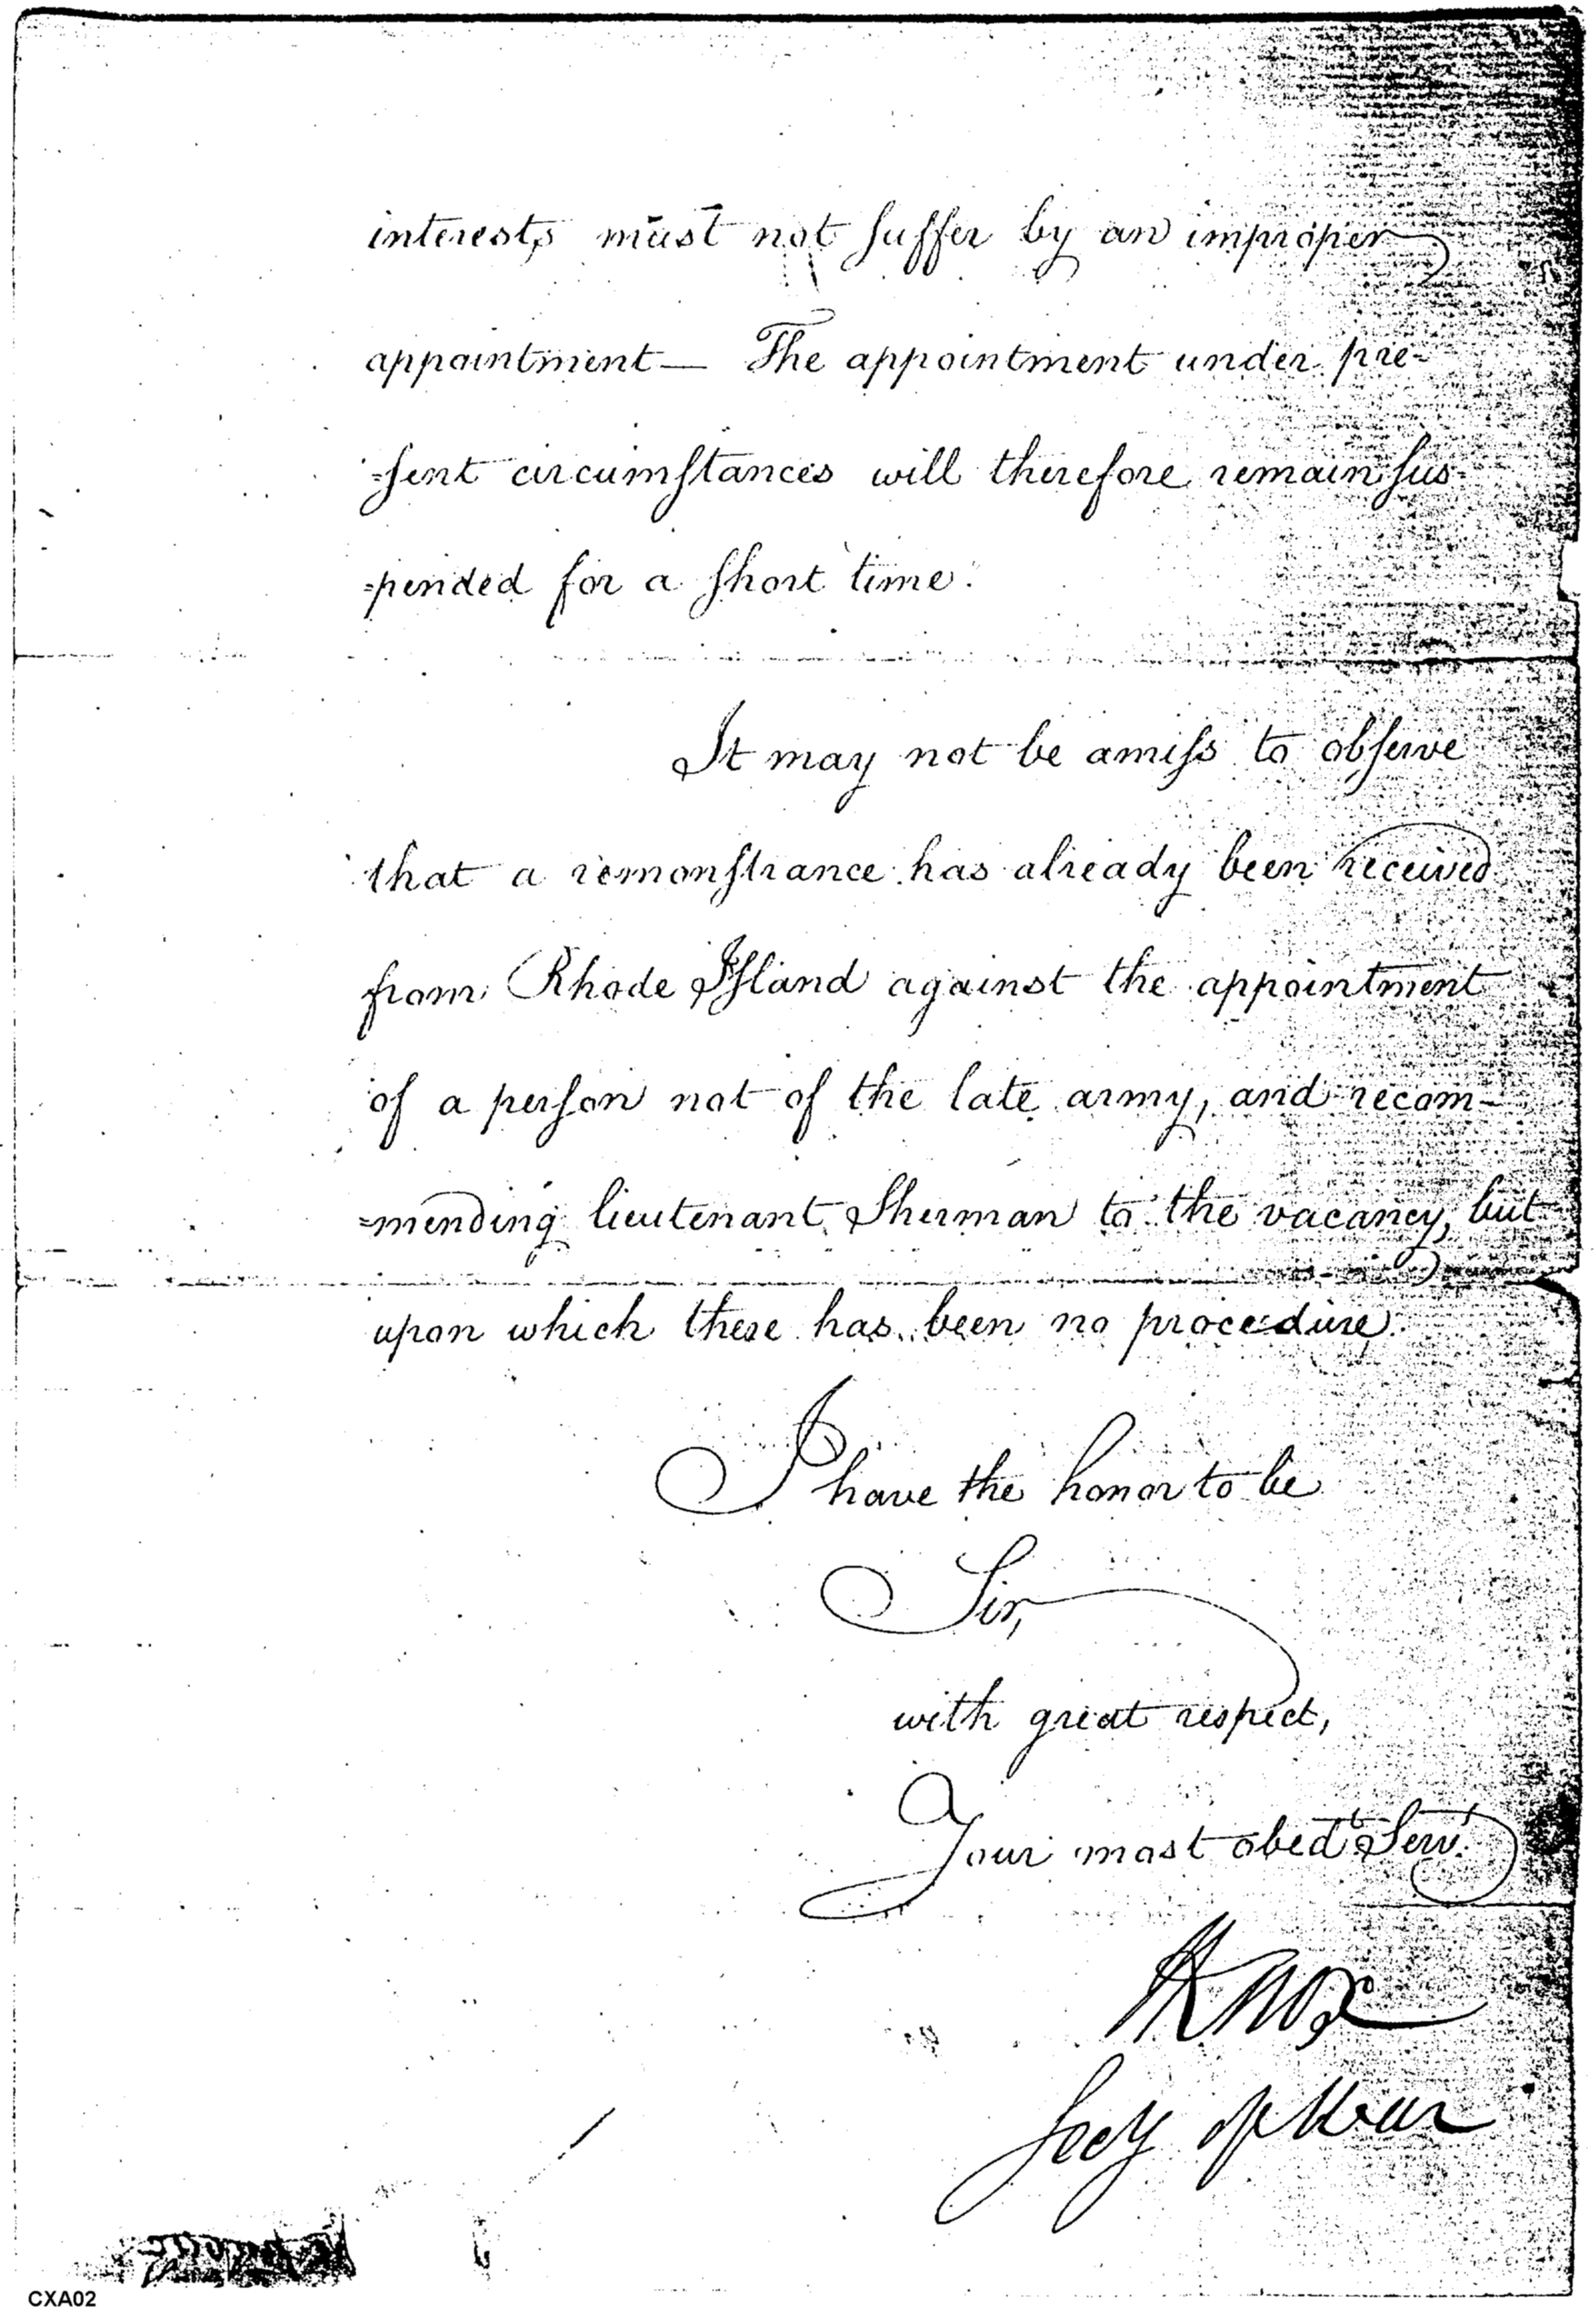 interests must not suffer by an improper
appointment — The appointment under pre=
=sent circumstances will therefore remain sus=
=pended for a short time.
It may not be amiss to observe
that a remonstrance has already been received
from Rhode Island against the appointment
of a person not of the late army, and recom=
=mending lieutenant Sherman to the vacancy, but
upon which there has been no procedure.
I have the honor to be
Sir,
with great respect,
Your most obedt Servt
HKnox
Secy of War
CXA02